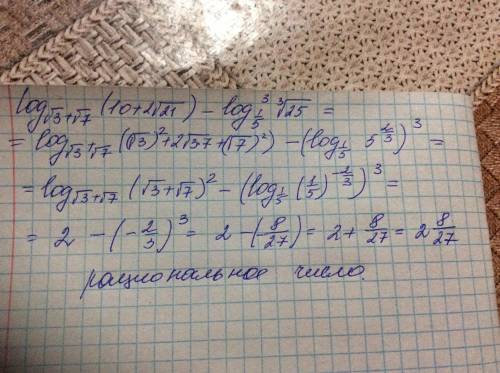 log_{√3+√7} (10+2√21) − log³_{1/5} ∛25 =
= log_{√3+√7} ((√3)²+2√3·7+(√7)²) − (log_{1/5} 5^{2/3})³ =
= log_{√3+√7} (√3+√7)² − (log_{1/5} (1/5)^{−2/3})³ =
= 2 − (−2/3)³ = 2 − (−8/27) = 2 + 8/27 = 2 8/27
рациональное число.